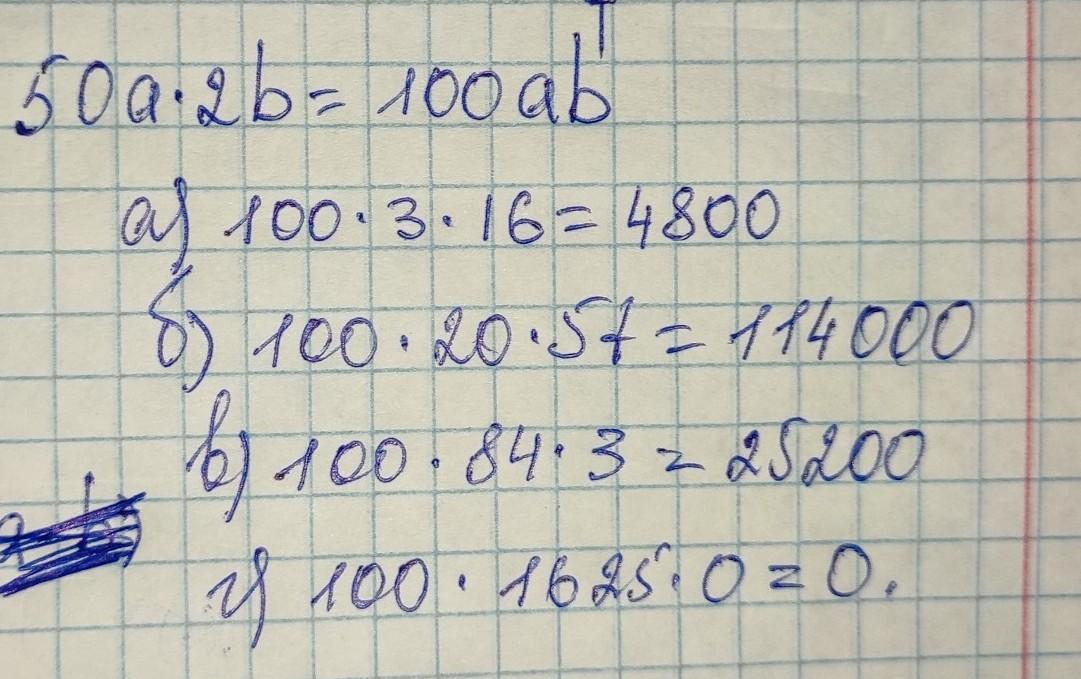 50a·2b= 100ab
а) 100·3·16= 4800
б) 100·20·57= 114000
в) 100·84·3 = 25200
г) 100·1625·0=0.